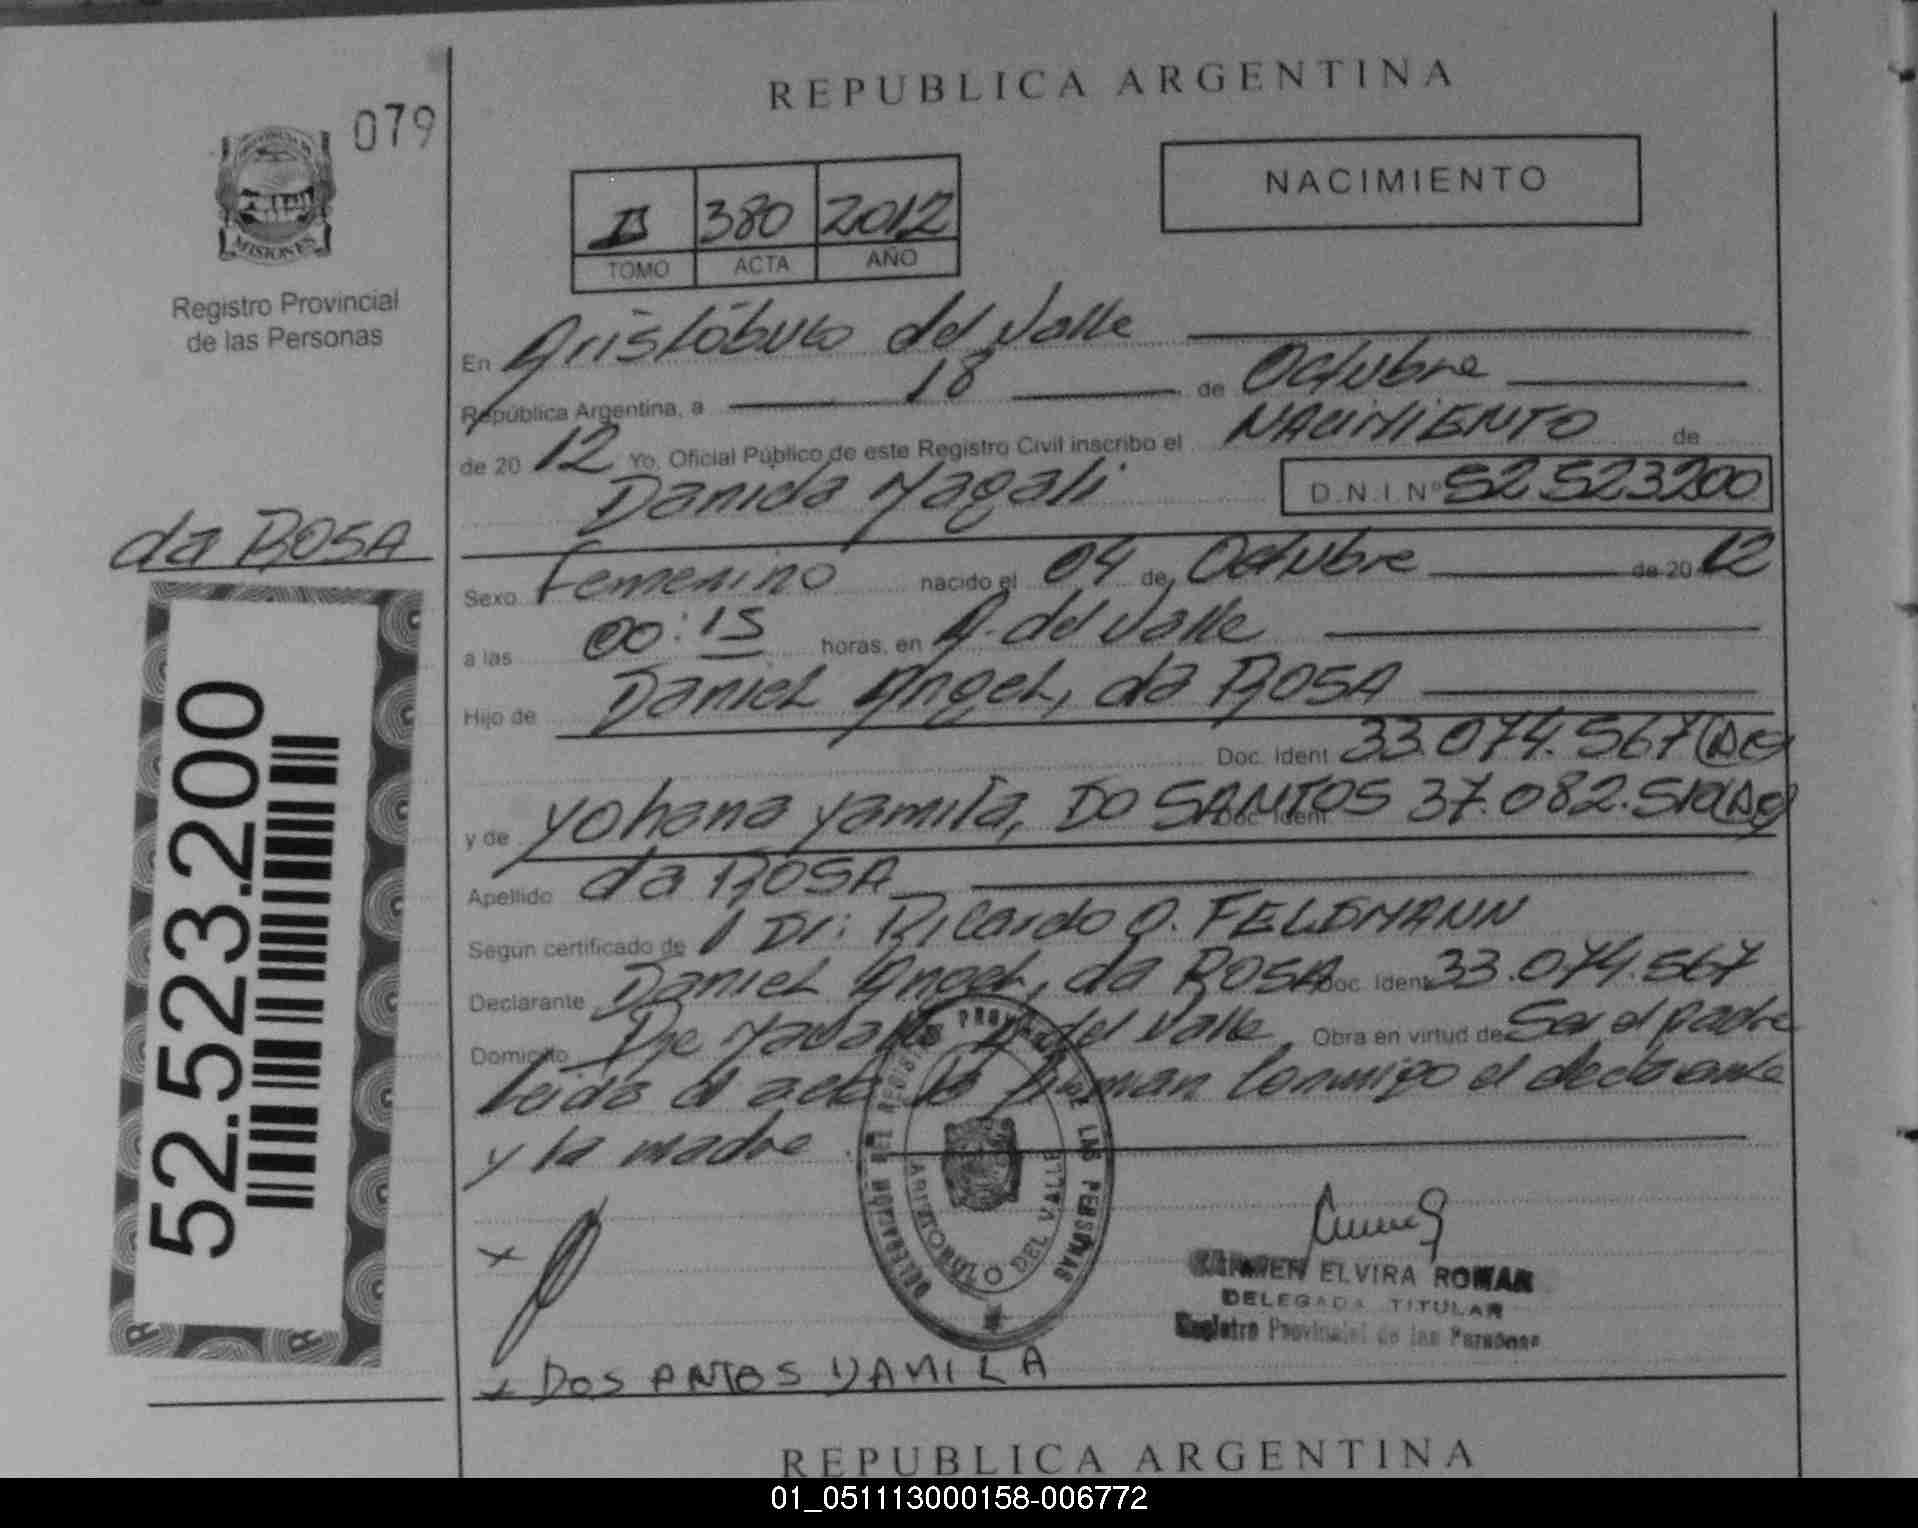 REPUBLICA ARGENTINA
079
MISIONES
Registro Provincial
de las Personas
II 380 2012
TOMO ACTA AÑO
NACIMIENTO
En Aristóbulo del Valle
República Argentina, a 18 de Octubre
de 2012 Yo, Oficial Público de este Registro Civil inscribo el NACIMIENTO de
Daniela Magali D.N.I. Nº 52523200
da ROSA
52.523.200
Sexo Femenino nacido el 04 de Octubre de 2012
a las 00:15 horas, en A. del Valle
Hijo de Daniel Angel, da ROSA
Doc. Ident 33.074.567
y de Yohana Yamila, DO SANTOS Doc. Ident. 37.082.510
Apellido da ROSA
Según certificado de Dr: Ricardo O. FELDMANN
Declarante Daniel Angel, da ROSA Doc. Ident 33.074.567
Domicilio del Valle Obra en virtud de Ser el padre
Leida el acta la firman conmigo el declarante
y la madre.
DELEGACION DEL REGISTRO PROVINCIAL DE LAS PERSONAS
ARISTOBULO DEL VALLE
CARMEN ELVIRA ROMAN
DELEGADA TITULAR
Registro Provincial de las Personas
x
x DOS ANTOS YAMILA
REPUBLICA ARGENTINA
01_051113000158-006772